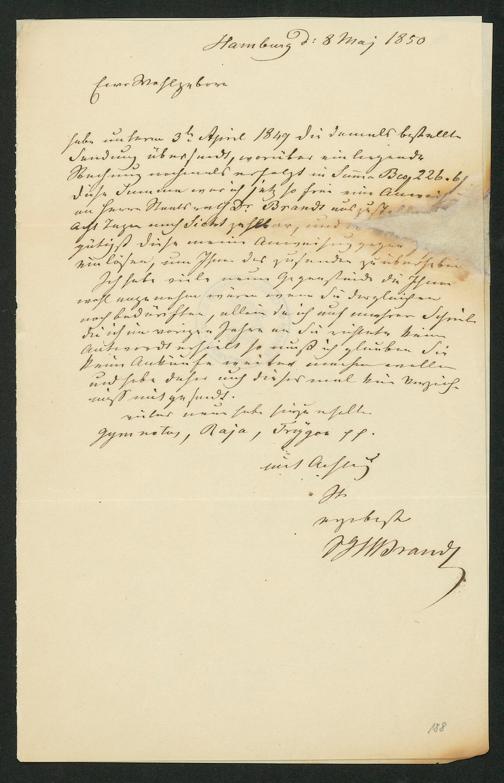 Hamburg d: 8 Maj 1850
Euer Wohlgeboren
habe unterm 3t April 1849 die damals bestellte
Sendung übersandt, worüber einliegende
Rechnung nochmals erfolgt in Summa Bco 226.
diese Summe war ich jetz so frei eine
an Herrn Staatsrath Dr. Brandt
Acht Tagen nach Sicht zahlbar, und
gütigst diese meine Anweisung gegen
einlösen, um Ihnen des zusenden zu
Ich habe viele neue Gegenstände die Ihnen
wohl angenehm wären wenn Sie dergleichen
noch bedürften, allein da ich auf mehrere Schreiben
die ich im vorigen Jahre an Sie richtete keine
Antwordt erhielt so muß ich glauben Sie
keine Ankäufe weiter machen wollen
und habe daher auch dieses mal kein Verzeich-
niss mit gesandt.
vieles neue habe ich erhalten
Gymnotus, Raja, Trygon pp.
mit Achtung
Ihr
ergebenster
Brandt
188